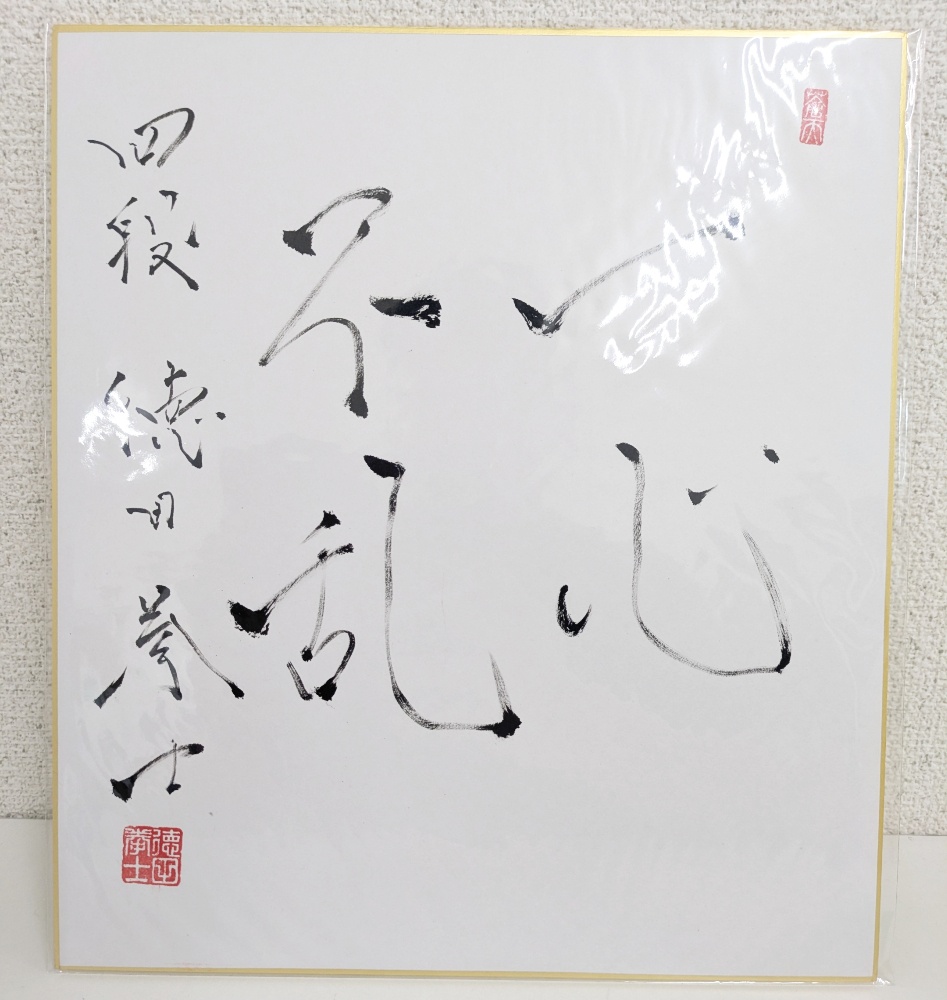 一心
不乱
四段 徳田拳士
徳田
拳士